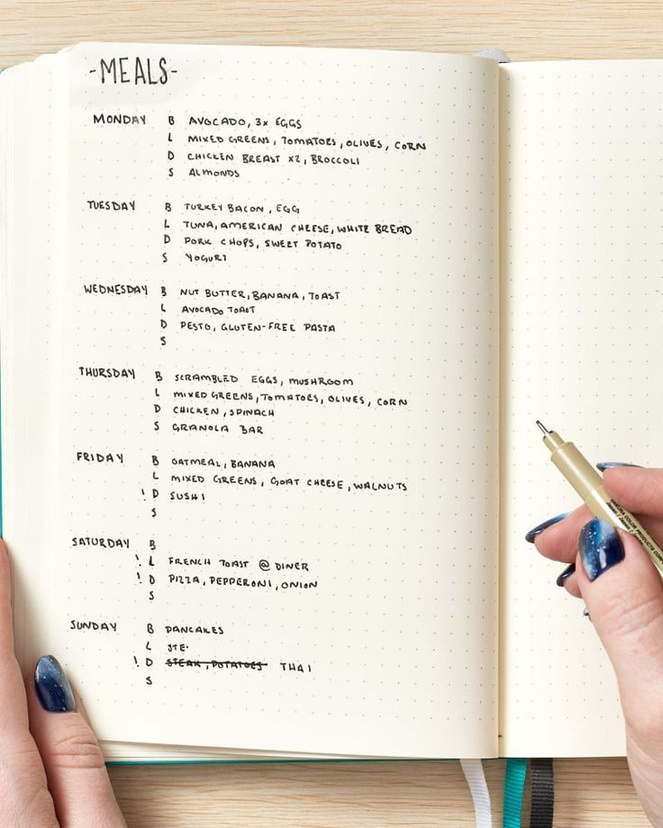 -MEALS-
MONDAY B AVOCADO, 3x EGGS
L MIXED GREENS, TOMATOES, OLIVES, CORN
D CHICKEN BREAST X2, BROCCOLI
S ALMONDS
TUESDAY B TURKEY BACON, EGG
L TUNA, AMERICAN CHEESE, WHITE BREAD
D PORK CHOPS, SWEET POTATO
S YOGURT
WEDNESDAY B NUT BUTTER, BANANA, TOAST
L AVOCADO TOAST
D PESTO, GLUTEN-FREE PASTA
S
THURSDAY B SCRAMBLED EGGS, MUSHROOM
L MIXED GREENS, TOMATOES, OLIVES, CORN
D CHICKEN, SPINACH
S GRANOLA BAR
FRIDAY B OATMEAL, BANANA
L MIXED GREENS, GOAT CHEESE, WALNUTS
! D SUSHI
S
SATURDAY B
! L FRENCH TOAST @ DINER
! D PIZZA, PEPPERONI, ONION
S
SUNDAY B PANCAKES
L STE
! D STEAK, POTATOES THAI
S